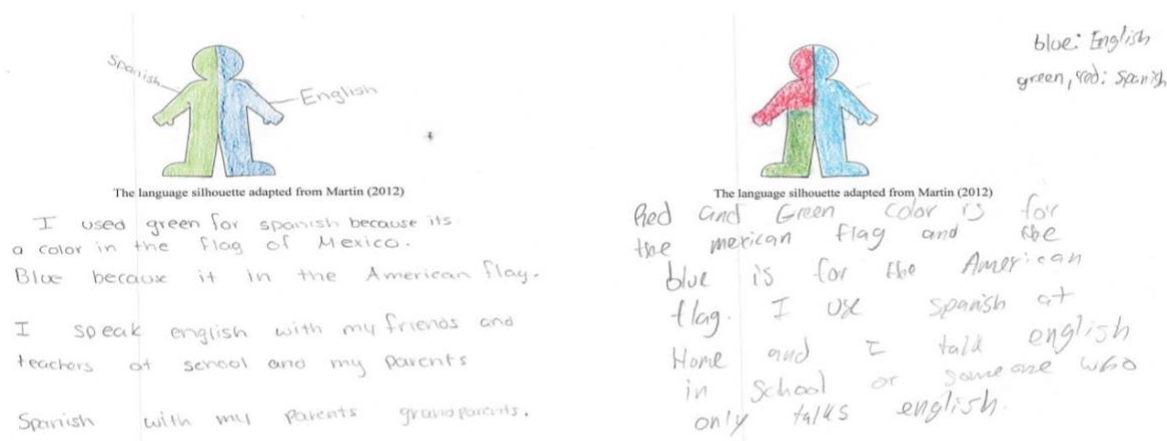 Spanish
English
The language silhouette adapted from Martin (2012)
I used green for spanish because its
a color in the flag of Mexico.
Blue because it in the American flag.
I speak english with my friends and
teachers at school and my parents
Spanish with my parents grandparents.
blue: English
green, red: Spanish
The language silhouette adapted from Martin (2012)
Red and Green color is for
the mexican flag and the
blue is for the American
flag. I use spanish at
Home and I talk english
in school or someone who
only talks english.